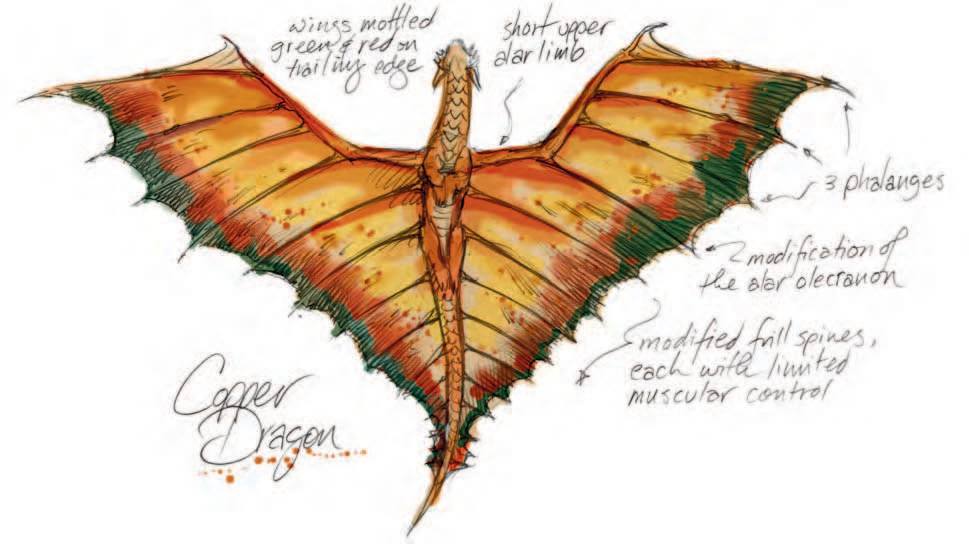 wings mottled
green & red on
trailing edge
short upper
alar limb
3 phalanges
modification of
the alar olecranon
modified frill spines,
each with limited
muscular control
Copper
Dragon